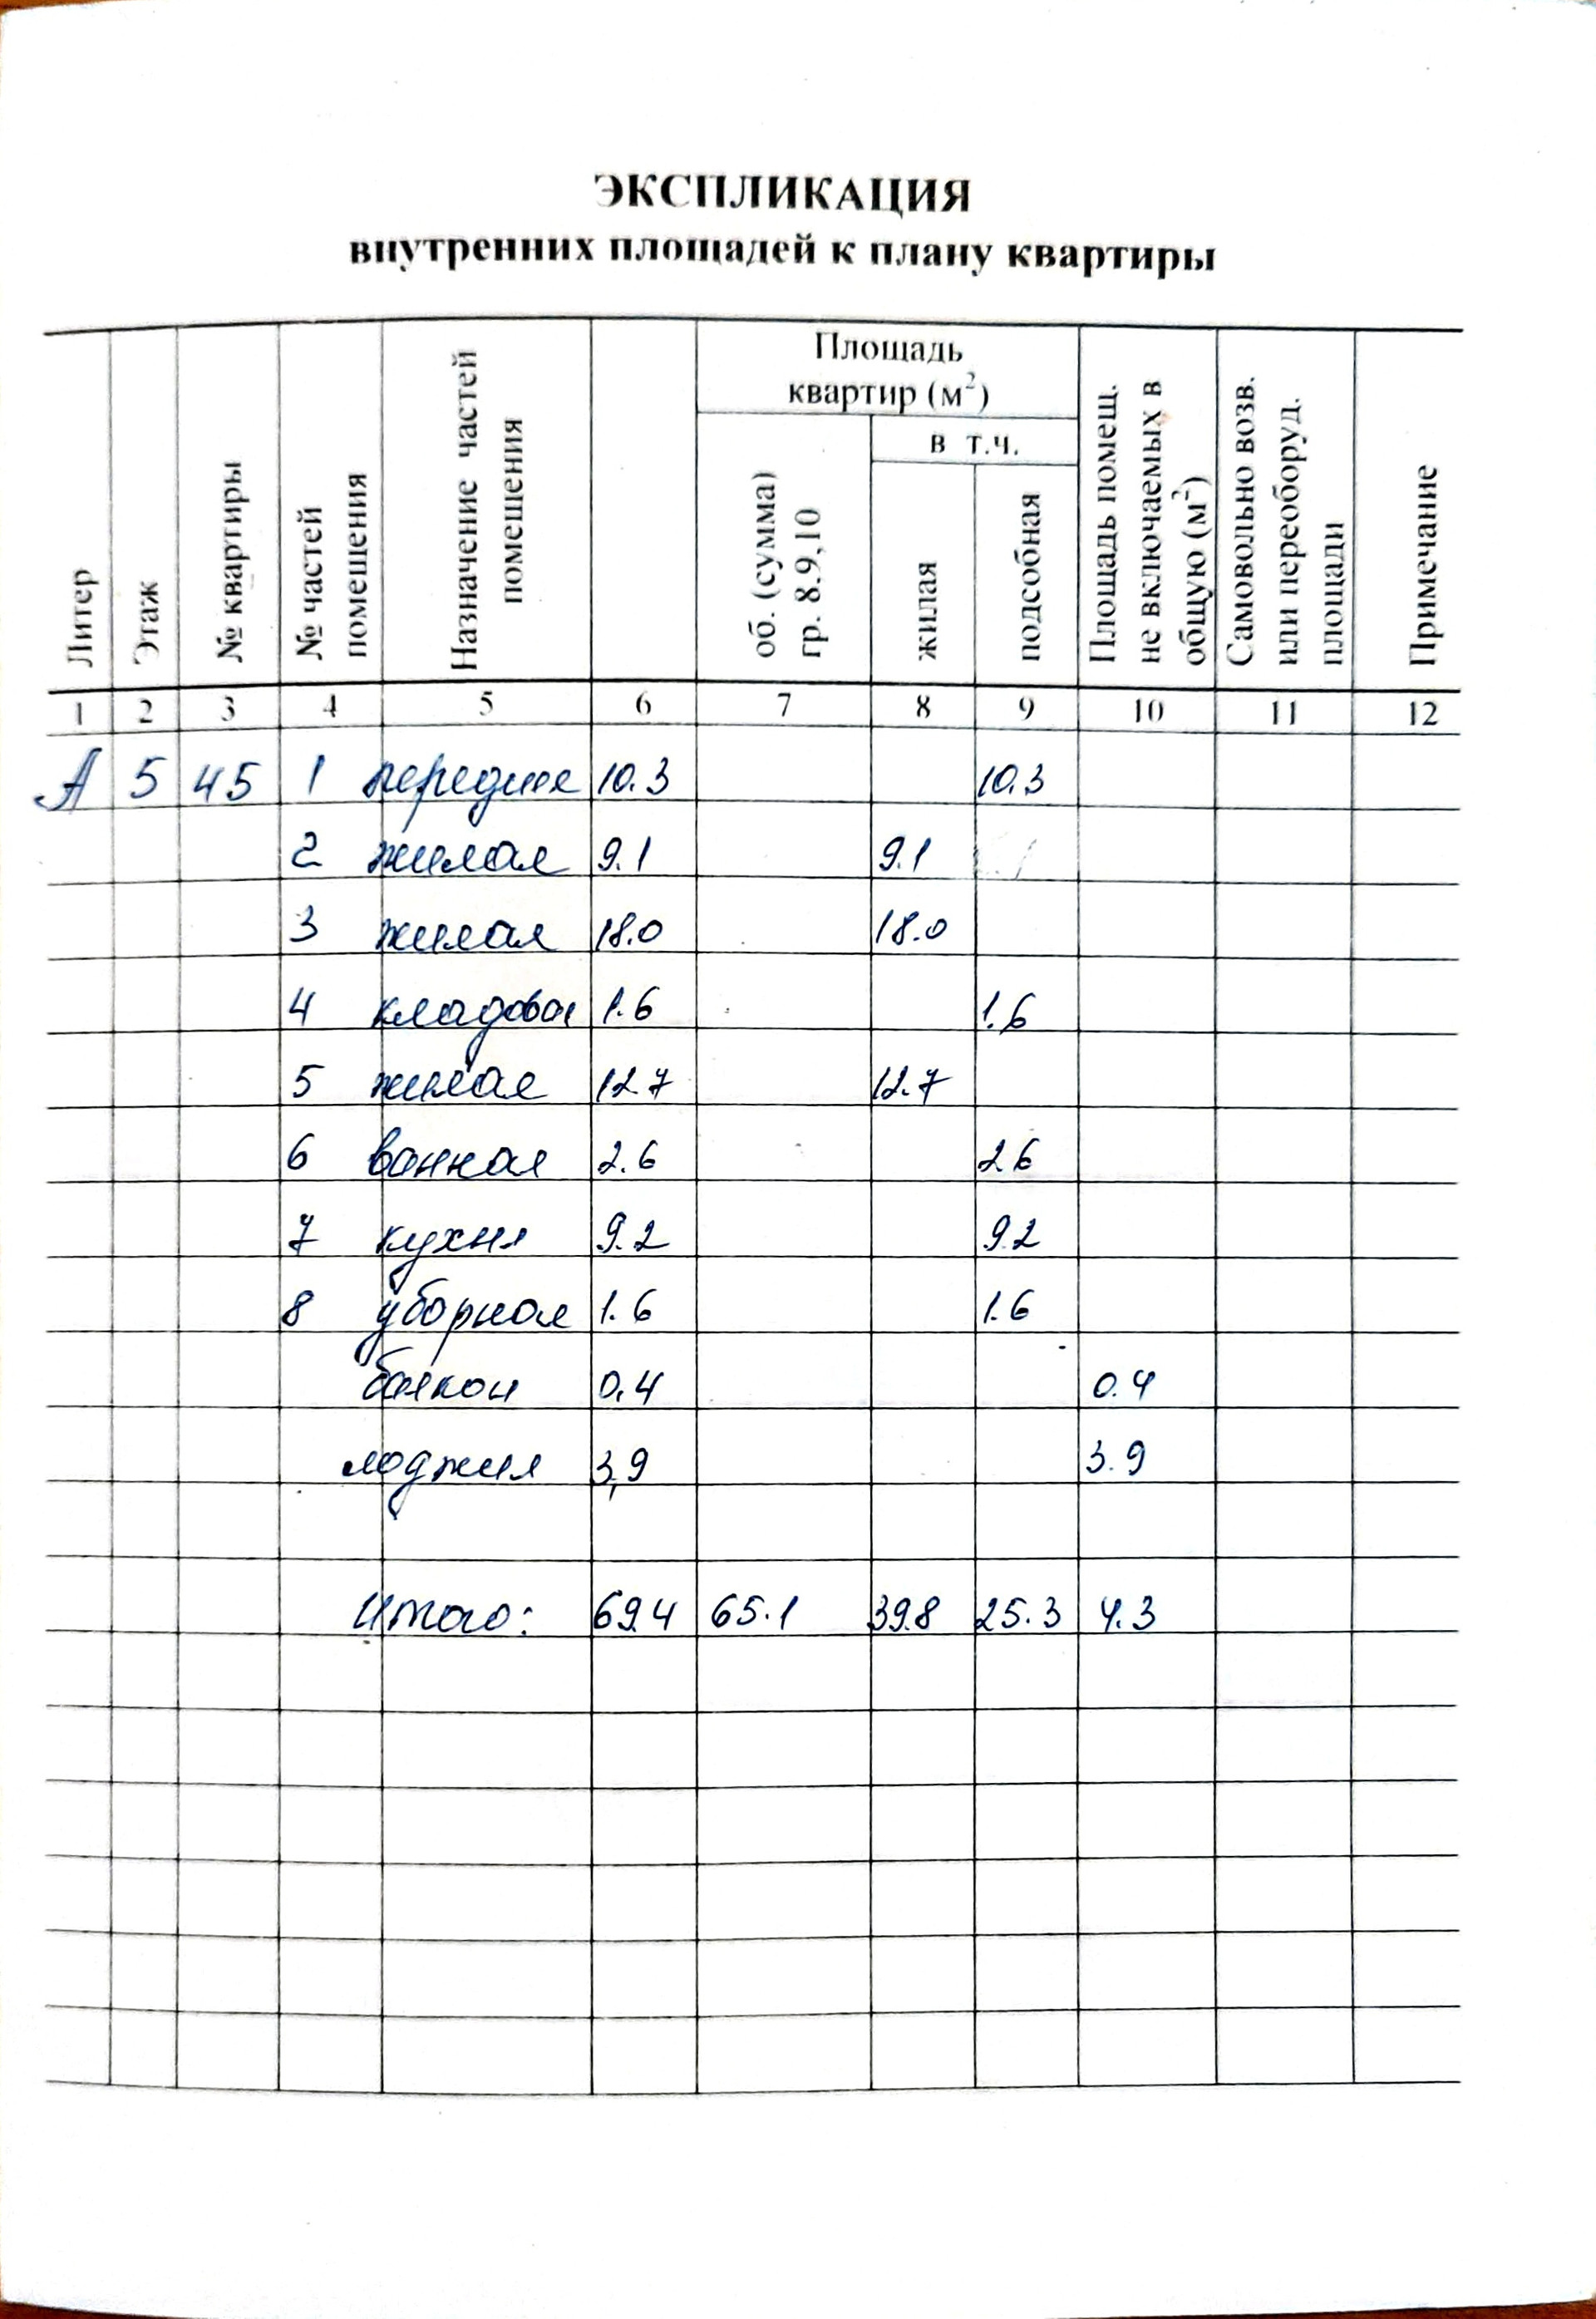 ЭКСПЛИКАЦИЯ
внутренних площадей к плану квартиры
Литер
Этаж
№ квартиры
№ частей
помещения
Назначение частей
помещения
Площадь
квартир (м²)
об. (сумма)
гр. 8.9,10
в т.ч.
жилая
подсобная
Площадь помещ.
не включаемых в
общую (м²)
Самовольно возв.
или переоборуд.
площади
Примечание
1 2 3 4 5 6 7 8 9 10 11 12
А 5 45 1 передняя 10.3 10.3
2 жилая 9.1 9.1
3 жилая 18.0 18.0
4 кладовая 1.6 1.6
5 жилая 12.7 12.7
6 ванная 2.6 2.6
7 кухня 9.2 9.2
8 уборная 1.6 1.6
балкон 0.4 0.4
лоджия 3,9 3.9
Итого: 69.4 65.1 39.8 25.3 4.3